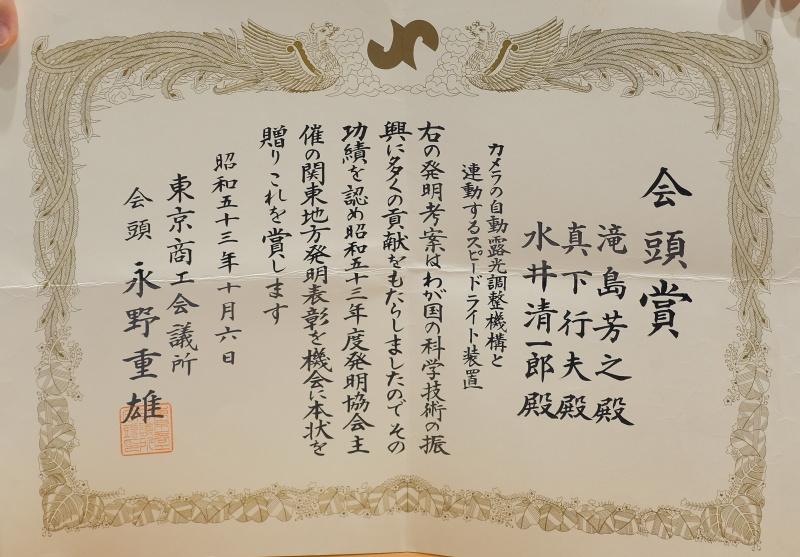 会頭賞
滝島芳之殿
真下行夫殿
水井清一郎殿
カメラの自動露光調整機構と
連動するスピードライト装置
右の発明考案はわが国の科学技術の振
興に多くの貢献をもたらしましたので その
功績を認め昭和五十三年度発明協会主
催の関東地方発明表彰を機会に本状を
贈り これを賞します
昭和五十三年十月六日
東京商工会議所
会頭 永野重雄